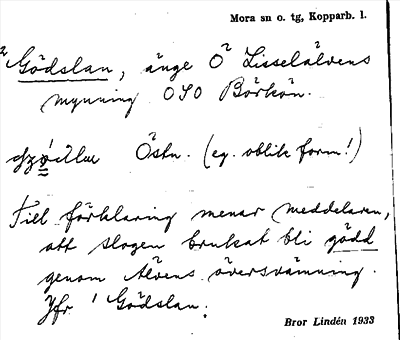 Mora sn o. tg, Kopparb. l.
2 Gödslan, änge Ö Lisselälvens
mynning OSO Börkön.
Östn. (eg. oblik form!)
Till förklaring menar meddelaren,
att slogen brukat bli gödd
genom älvens översvämning.
Jfr 1 Gödslan.
Bror Lindén 1933